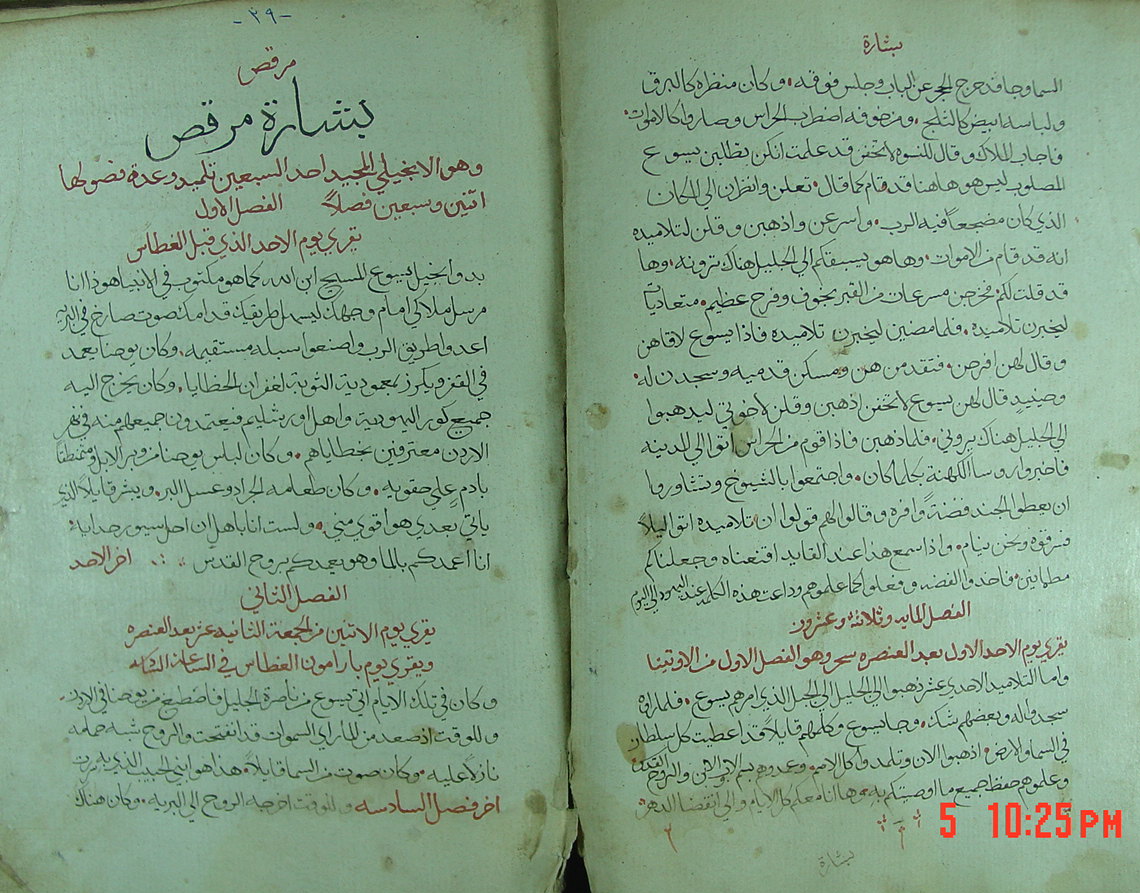 بشارة
السما وجا فدحرج الحجر عن الباب وجلس فوقه وكان منظره كالبرق
ولباسه ابيض كالثلج ومن خوفه اضطرب الحراس وصاروا كالاموات
فاجاب الملاك وقال للنسوة لا تخفن قد علمت انكن تطلبن يسوع
المصلوب ليس هو هاهنا قد قام كما قال تعلن وانظرن الى المكان
الذي كان مضجعاً فيه الرب واسرعن واذهبن وقلن لتلاميذه
انه قد قام من الاموات وها هو يسبقكم الي الجليل هناك ترونه وها
قد قلت لكم فخرجن مسرعات من القبر بخوف وفرح عظيم متعاديات
ليخبرن تلاميذه فلما مضين ليخبرن تلاميذه فاذا يسوع لاقاهن
وقال لهن افرحن فتقدمن هن ومسكن قدميه وسجدن له
وحينيدٍ قال لهن يسوع لا تخفن اذهبن وقلن لاخوتي ليذهبوا
الي الجليل هناك يروني فلما ذهبن فاذا قوم من الحراس اتوا الي المدينه
فاخبروا روسا الكهنة بكلما كان واجتمعوا بالشيوخ وتشاوروا
ان يعطوا الجند فضة وافره وقالوا لهم قولوا ان تلاميذه اتوا ليلاً
وسرقوه ونحن نيام واذا سمع هذا عند القايد اقنعناه وجعلناكم
مطمانين فاخذوا الفضه وفعلوا كما علموهم وذاعت هذه الكلمه عند اليهود الي اليوم
الفصل المايه وثلاثة وعشرون
يقري يوم الاحد الاول بعد العنصره سحر وهو الفصل الاول من الاوتينا
واما التلاميذ الاحدي عشر ذهبوا الي الجليل الي الجبل الذي امرهم يسوع فلما راوه
سجدوا له وبعضهم شك وجا يسوع وكلمهم قايلاً قد اعطيت كل سلطان
في السما والارض اذهبوا الان وتلمدوا كل الامم وعمدوهم بسم الاب والابن والروح القدس
وعلموهم حفظ جميع ما اوصيتكم به وها انا معكم كل الايام والي انقضا الدهر
بشارة
5 10:25PM
-٣٩-
مرقص
بشارة مرقص
وهو الانجيلي المجيد احد السبعين تلميد وعدة فصولها
اتنين وسبعين فصلاً الفصل الاول
يقري يوم الاحد الذي قبل الغطاس
بدو انجيل يسوع المسيح ابن الله كما هو مكتوب في الانبيا هوذا انا
مرسل ملاكي امام وجهك ليسهل طريقك قدامك صوت صارخ في البريه
اعدوا طريق الرب واصنعوا سبله مستقيمه وكان يوحنا يعمد
في القفر ويكرز بمعمودية التوبة لغفران الخطايا وكان يخرج اليه
جميع كور اليهودية واهل اورشليم فيعتمدون جميعهم منه في نهر
الاردن معترفين بخطاياهم وكان لبلس يوحنا من وبر الابل ومتمنطقاً
بادم علي حقويه وكان طعامه الجراد وعسل البر ويبشر قايلاً الذي
ياتي بعدي هو اقوي مني ولست انا باهل ان احل سيور حدايه
انا أعمدكم بالما وهو يعمدكم بروح القدس اخر الاحد
الفصل الثاني
يقري يوم الاتنين من الجمعة الثانيه عشر بعد العنصره
ويقري يوم بارامون الغطاس في الساعة
وكان في تلك الايام اتي يسوع من ناصرة الجليل فاصطبغ من يوحنا في الاردن
وللوقت اذ صعد من الما راي السموات قد انفتحت والروح شبه حمامه
نازلاً عليه وكان صوت من السما قايلاً هذا هو ابني الحبيب الذي به سررت
اخر فصل السادسه وللوقت اخرجه الروح الي البريه وكان هناك